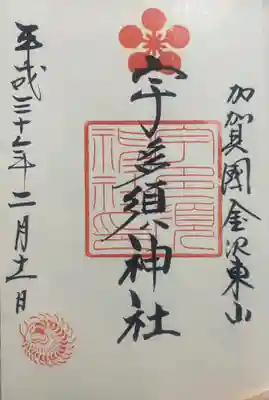 加賀國金沢東山
宇多須神社
平成三十年二月十一日